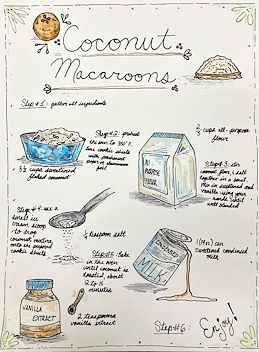 Coconut
Macaroons
Step #1: gather all ingredients
2/3 cup all-purpose
flour
Step #2: preheat
the oven to 350°F.
line cookie sheets
with parchment
paper or aluminum
foil
5 1/2 cups sweetened
flaked coconut
ALL
PURPOSE
FLOUR
Step #3: stir
coconut, flour, & salt
together in a bowl.
Mix in condensed milk and
vanilla using your
hands until well
blended
Step #4: use a
small ice
cream scoop
to drop
coconut mixture
onto the
cookie sheets
1/4 teaspoon salt
CONDENSED
MILK
1 (14oz) can
sweetened condensed
milk
Step #5: bake
in the oven
until coconut is
toasted, about
12-15
minutes
VANILLA
EXTRACT
2 teaspoons
vanilla extract
Step #6: Enjoy!